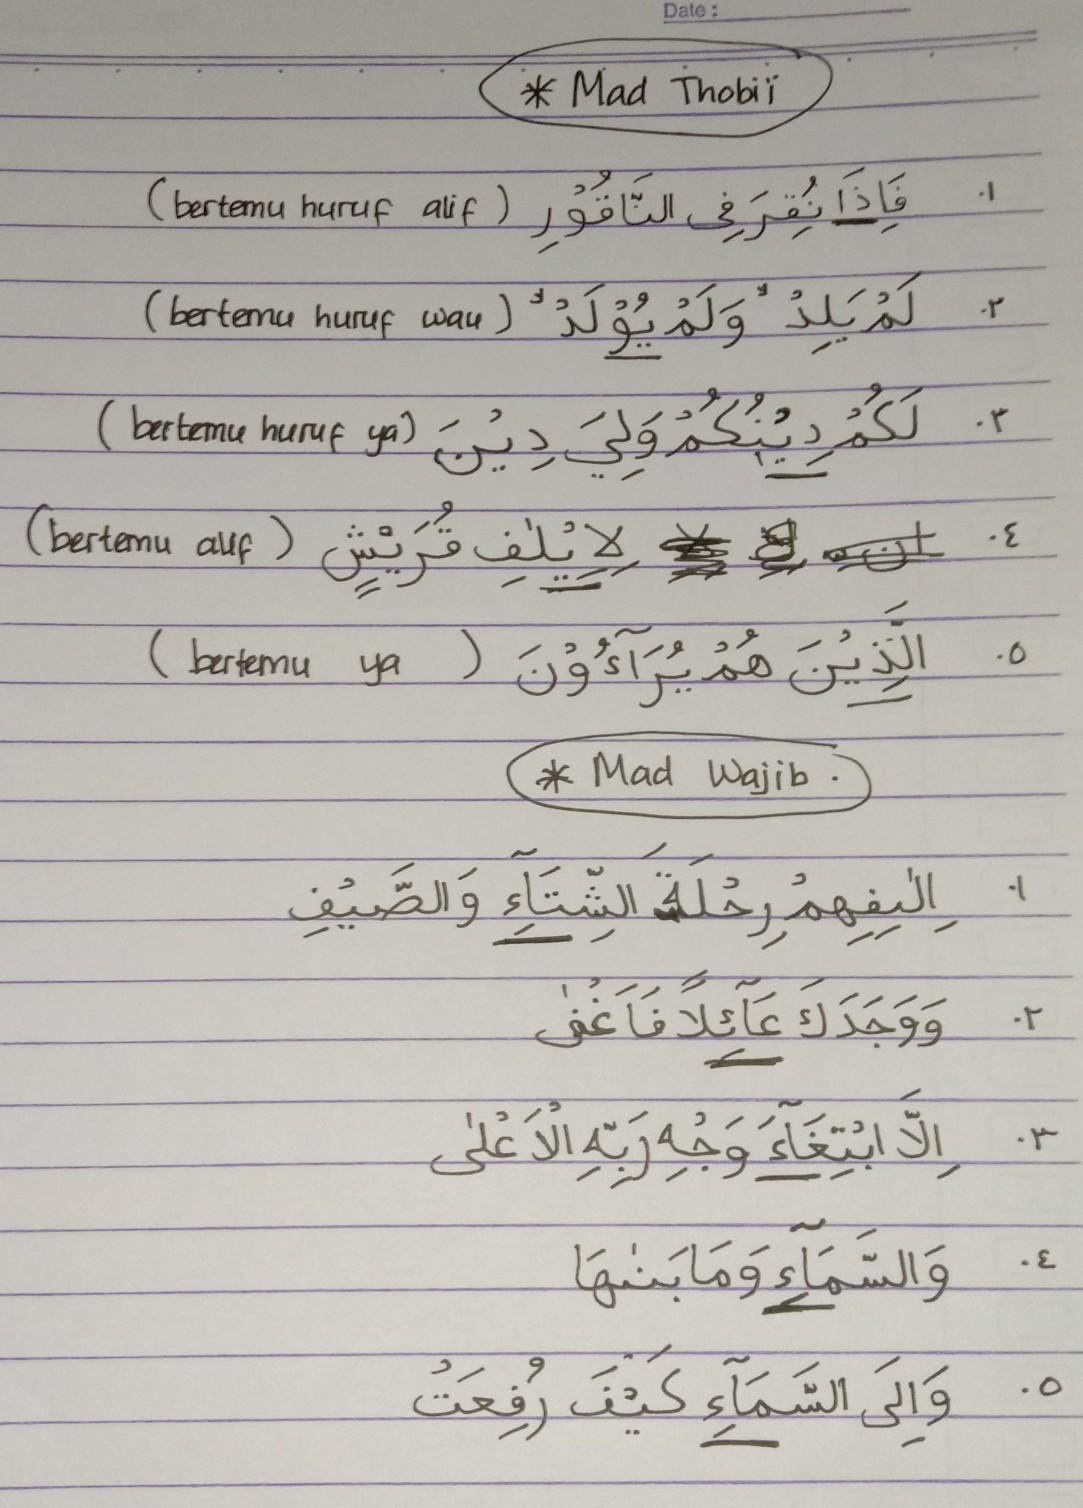 Date :
* Mad Thobi'i
١. فَاِذَا نُقِرَ فِى النَّاقُوْرِ (bertemu huruf alif)
٢. لَمْ يَلِدْ ۙ وَلَمْ يُوْلَدْ ۙ (bertemu huruf wau)
٣. لَكُمْ دِيْنُكُمْ وَلِيَ دِيْنَ (bertemu huruf ya)
٤. لِاِيْلٰفِ قُرَيْشٍ (bertemu alif)
٥. الَّذِيْنَ هُمْ يُرَآءُوْنَ (bertemu ya)
* Mad Wajib.
١. اِلٰفِهِمْ رِحْلَةَ الشِّتَآءِ وَالصَّيْفِ
٢. وَوَجَدَكَ عَآئِلًا فَاَغْنٰى
٣. اِلَّا ابْتِغَآءَ وَجْهِ رَبِّهِ الْاَعْلٰى
٤. وَالسَّمَآءِ وَمَا بَنٰىهَا
٥. وَاِلَى السَّمَآءِ كَيْفَ رُفِعَتْ